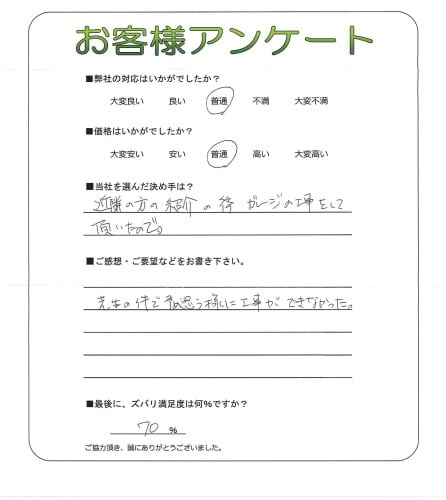 お客様アンケート
■弊社の対応はいかがでしたか？
大変良い 良い 普通 不満 大変不満
■価格はいかがでしたか？
大変安い 安い 普通 高い 大変高い
■当社を選んだ決め手は？
近隣の方の紹介の後 ガレージの工事をして
頂いたので。
■ご感想・ご要望などをお書き下さい。
の件で 思う様に工事ができなかった。
■最後に、ズバリ満足度は何％ですか？
70 ％
ご協力頂き、誠にありがとうございました。